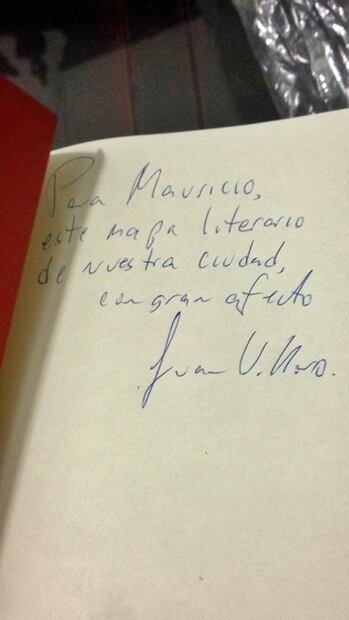 Para Mauricio,
este mapa literario
de nuestra ciudad,
con gran afecto
Juan Villoro.